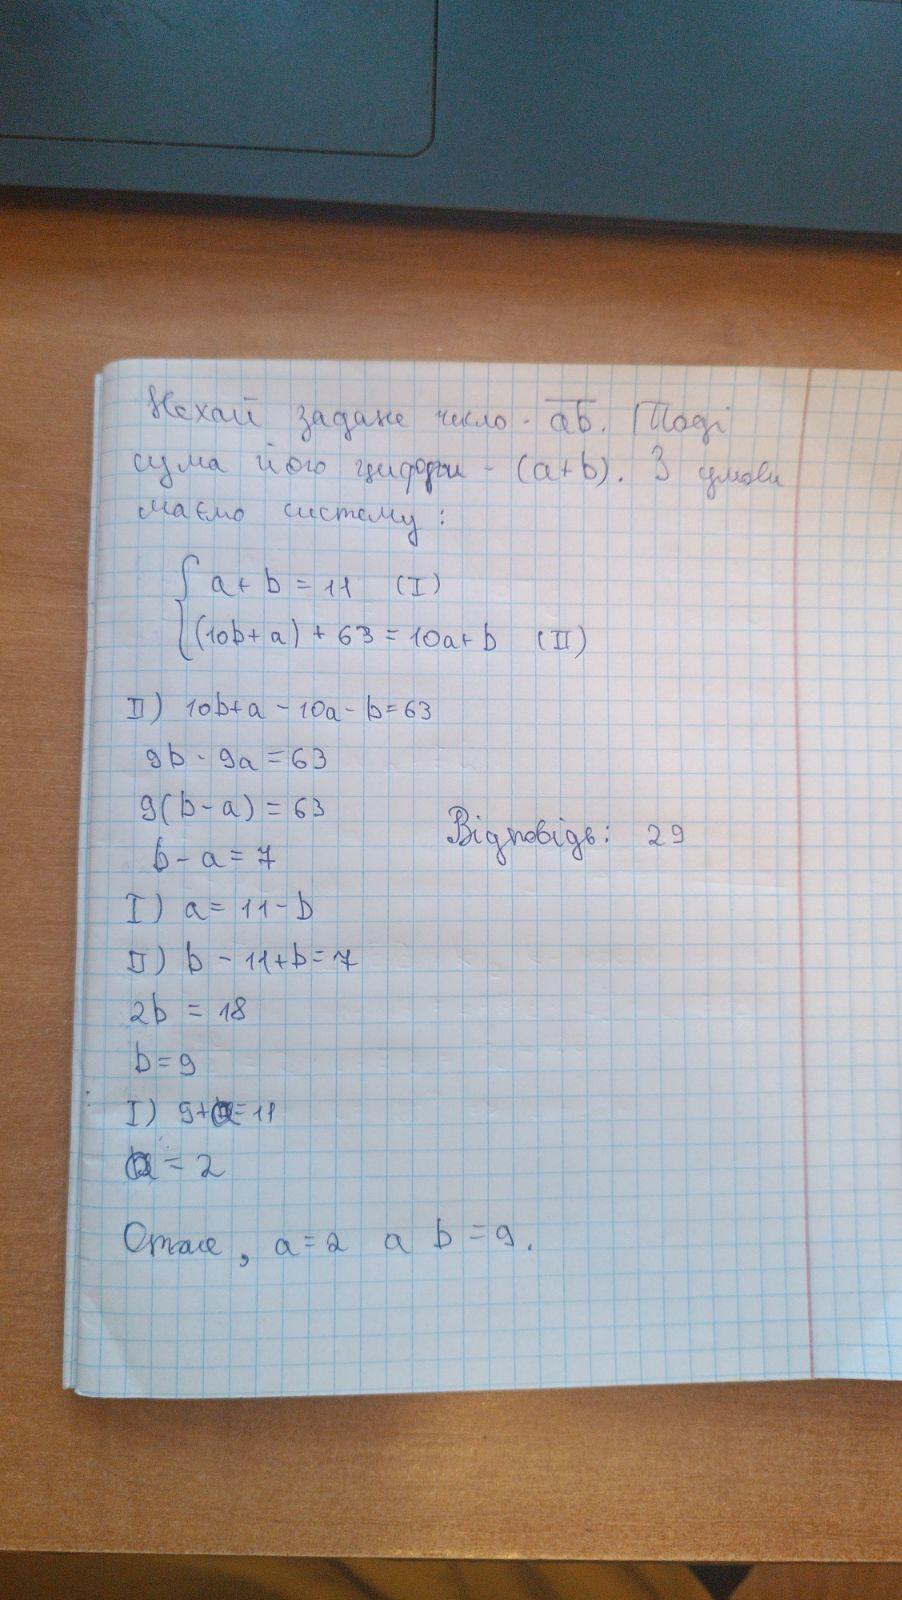 Нехай задане число - ab. Тоді
сума його цифри - (a+b). З умови
маємо систему:
a + b = 11 (I)
(10b+a) + 63 = 10a+b (II)
II) 10b+a - 10a - b = 63
9b - 9a = 63
9(b-a) = 63
b - a = 7
Відповідь: 29
I) a = 11 - b
II) b - 11 + b = 7
2b = 18
b = 9
I) 9+a=11
a = 2
Отже, a = 2 а b = 9.